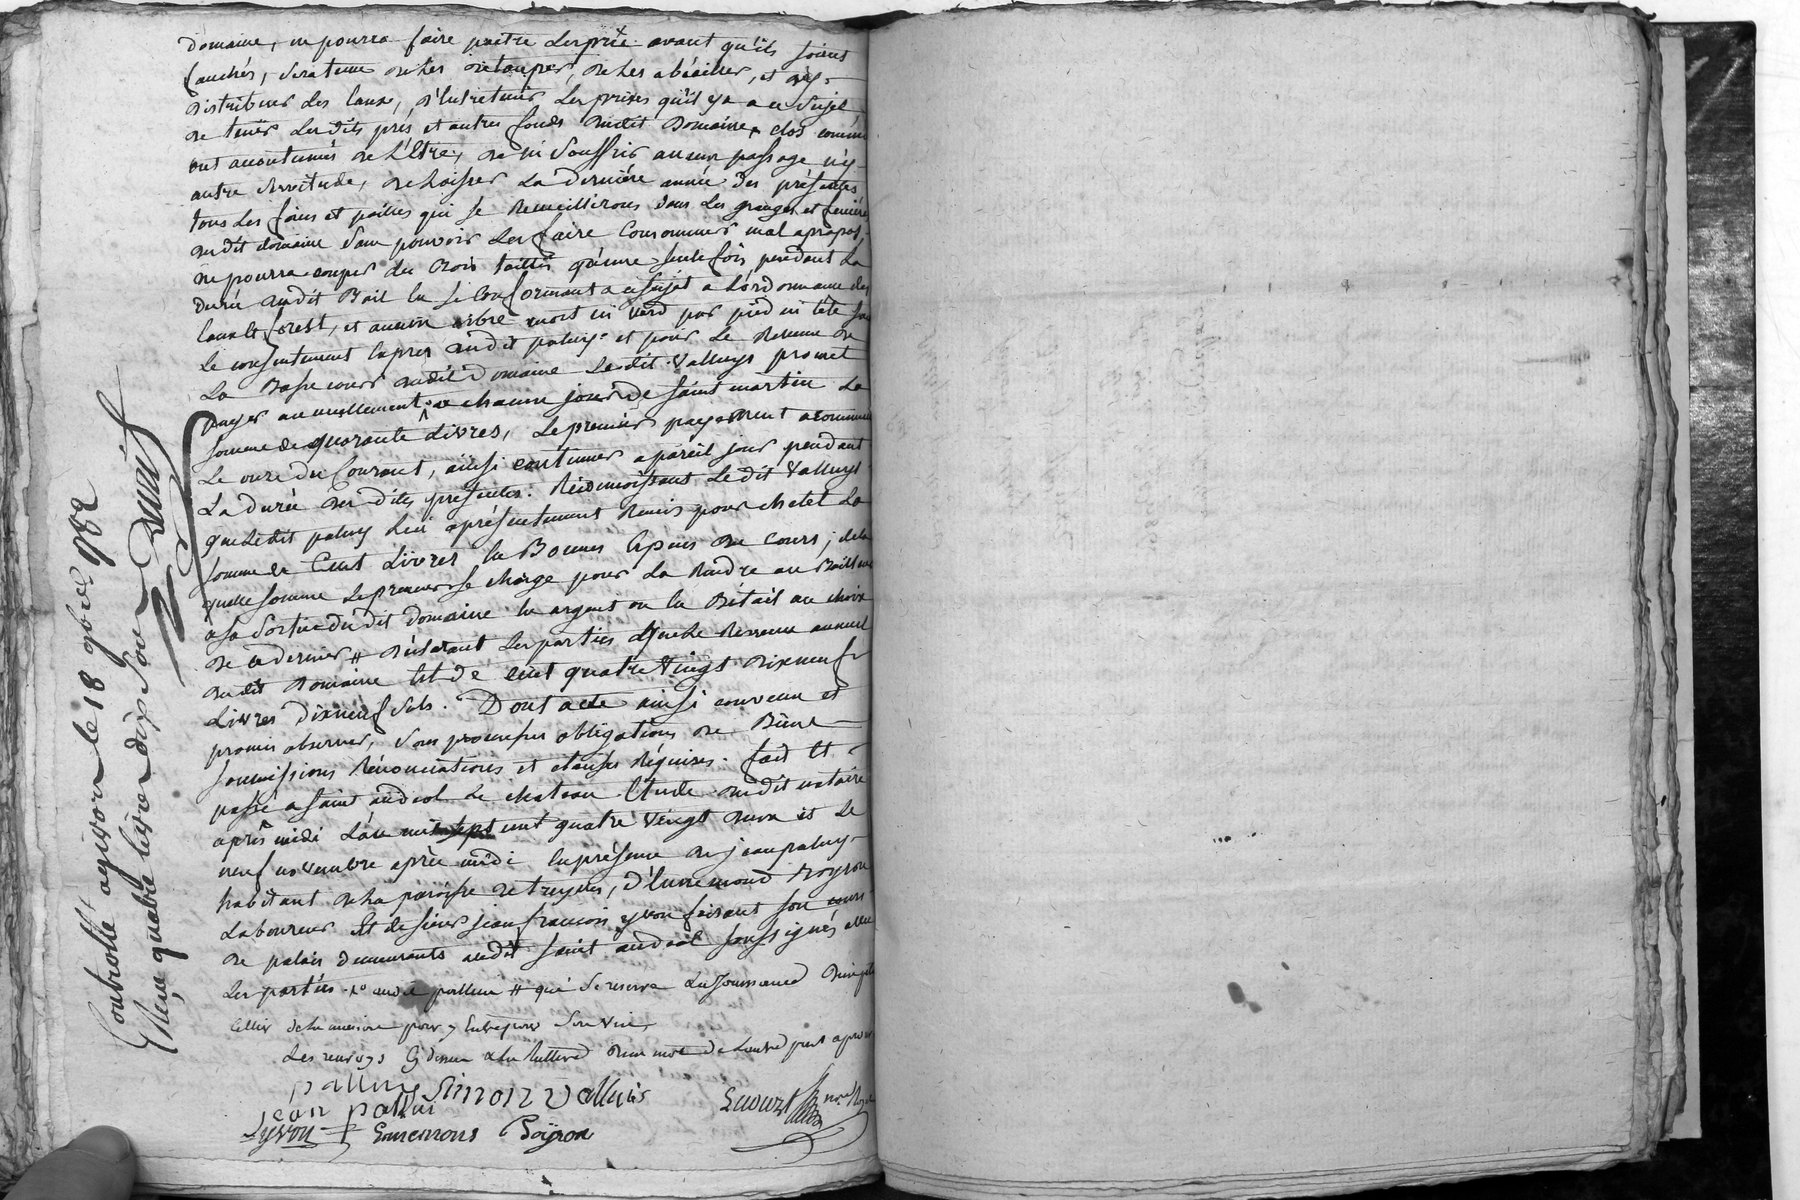 Domaine, ne pourra faire paitre les prés avant qu'ils soient
fauchés, sera tenu de les detouper, de les abéaliser, et d'ÿ
distribuer les Eaux, d'Entretenir les prises qu'il y a a ce sujet
de tenir les dits prés et autres fonds dudit Domaine, clos comme
ont accoutumés de L'Etre, de ni souffrir aucun passage n'y
autre servitude, de Laisser La derniére année des présentes
tous Les foins et pailles qui se Recueilliront dans Les granges et feniére
dudit domaine sans pouvoir Les faire Consommer mal apropos,
ne pourra couper du Bois taillis qu'une seule fois pendant La
durée dudit Bail En se Conformant a ce sujet a L'ordonnance des
Eaux Et forest, et aucun arbre mort ni verd par pied ni tête sans
le consentement Exprès dudit paluy et pour Le Revenu de
La Basse cour dudit Domaine Le dit Valluys promet
payer annuellement a chacun jour de saint martin La
somme de quarante Livres, Le premier payement a commencé
Le onze du Courant, ainsi continuer a pareil jour pendant
La durée des dites présentes. Réconnoissant Le dit Valluys
que Le dit paluy Lui a présentement Remis pour chetel La
somme de Cent Livres En Bonnes Espéces de Cours; de la
quelle somme Le preneur se charge pour La Rendre au Bailleur
a sa sortie du dit Domaine En argent ou En Bétail au choix
de ce dernier # Déclarant Les parties que Le Revenu annuel
dudit Domaine Est de cent quatre Vingt dixneuf
Livres dixneuf sols. Dont acte ainsi convenu et
promis observer, sous obligations de Biens
soumissions Rénonciations et clauses Réquises. fait Et
passé a saint andeol Le chateau Etude dudit notaire
après midi L'an mil sept cent quatre vingt deux et Le
neuf novembre après midi En présence de jean paluy
habitant de La paroisse de treyves, d'Ennemond Poyron
Laboureur Et de sieur jean francois yvon faisant son cours
de palais demeurants audit saint andeol soussignés avec
Les parties # qui se reserve La Jouissance d'un petit
Cellier de La maison pour y Entreposer Son vin,
Les renvoys Cy dessus
palluy Simon Valluis
jean palluis Enouzt nore Royal
Lyvon Ennemons Poÿron
Controllé a givors le 18 9bre 1782
Reçu quatre livres dix sols